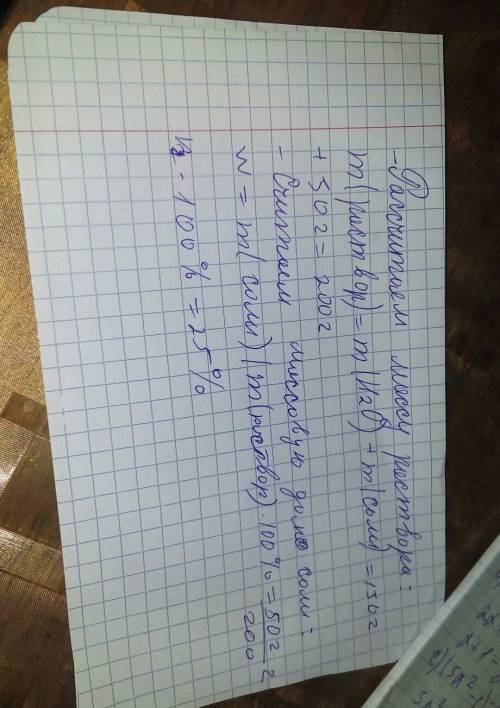 - Рассчитаем массу раствора:
m(раствор) = m(H2O) + m(соли) = 150г
+ 50г = 200г
- Считаем массовую долю соли:
w = m(соли) / m(раствор) · 100% = 50г / 200
· 100% = 25%
2x
x+1